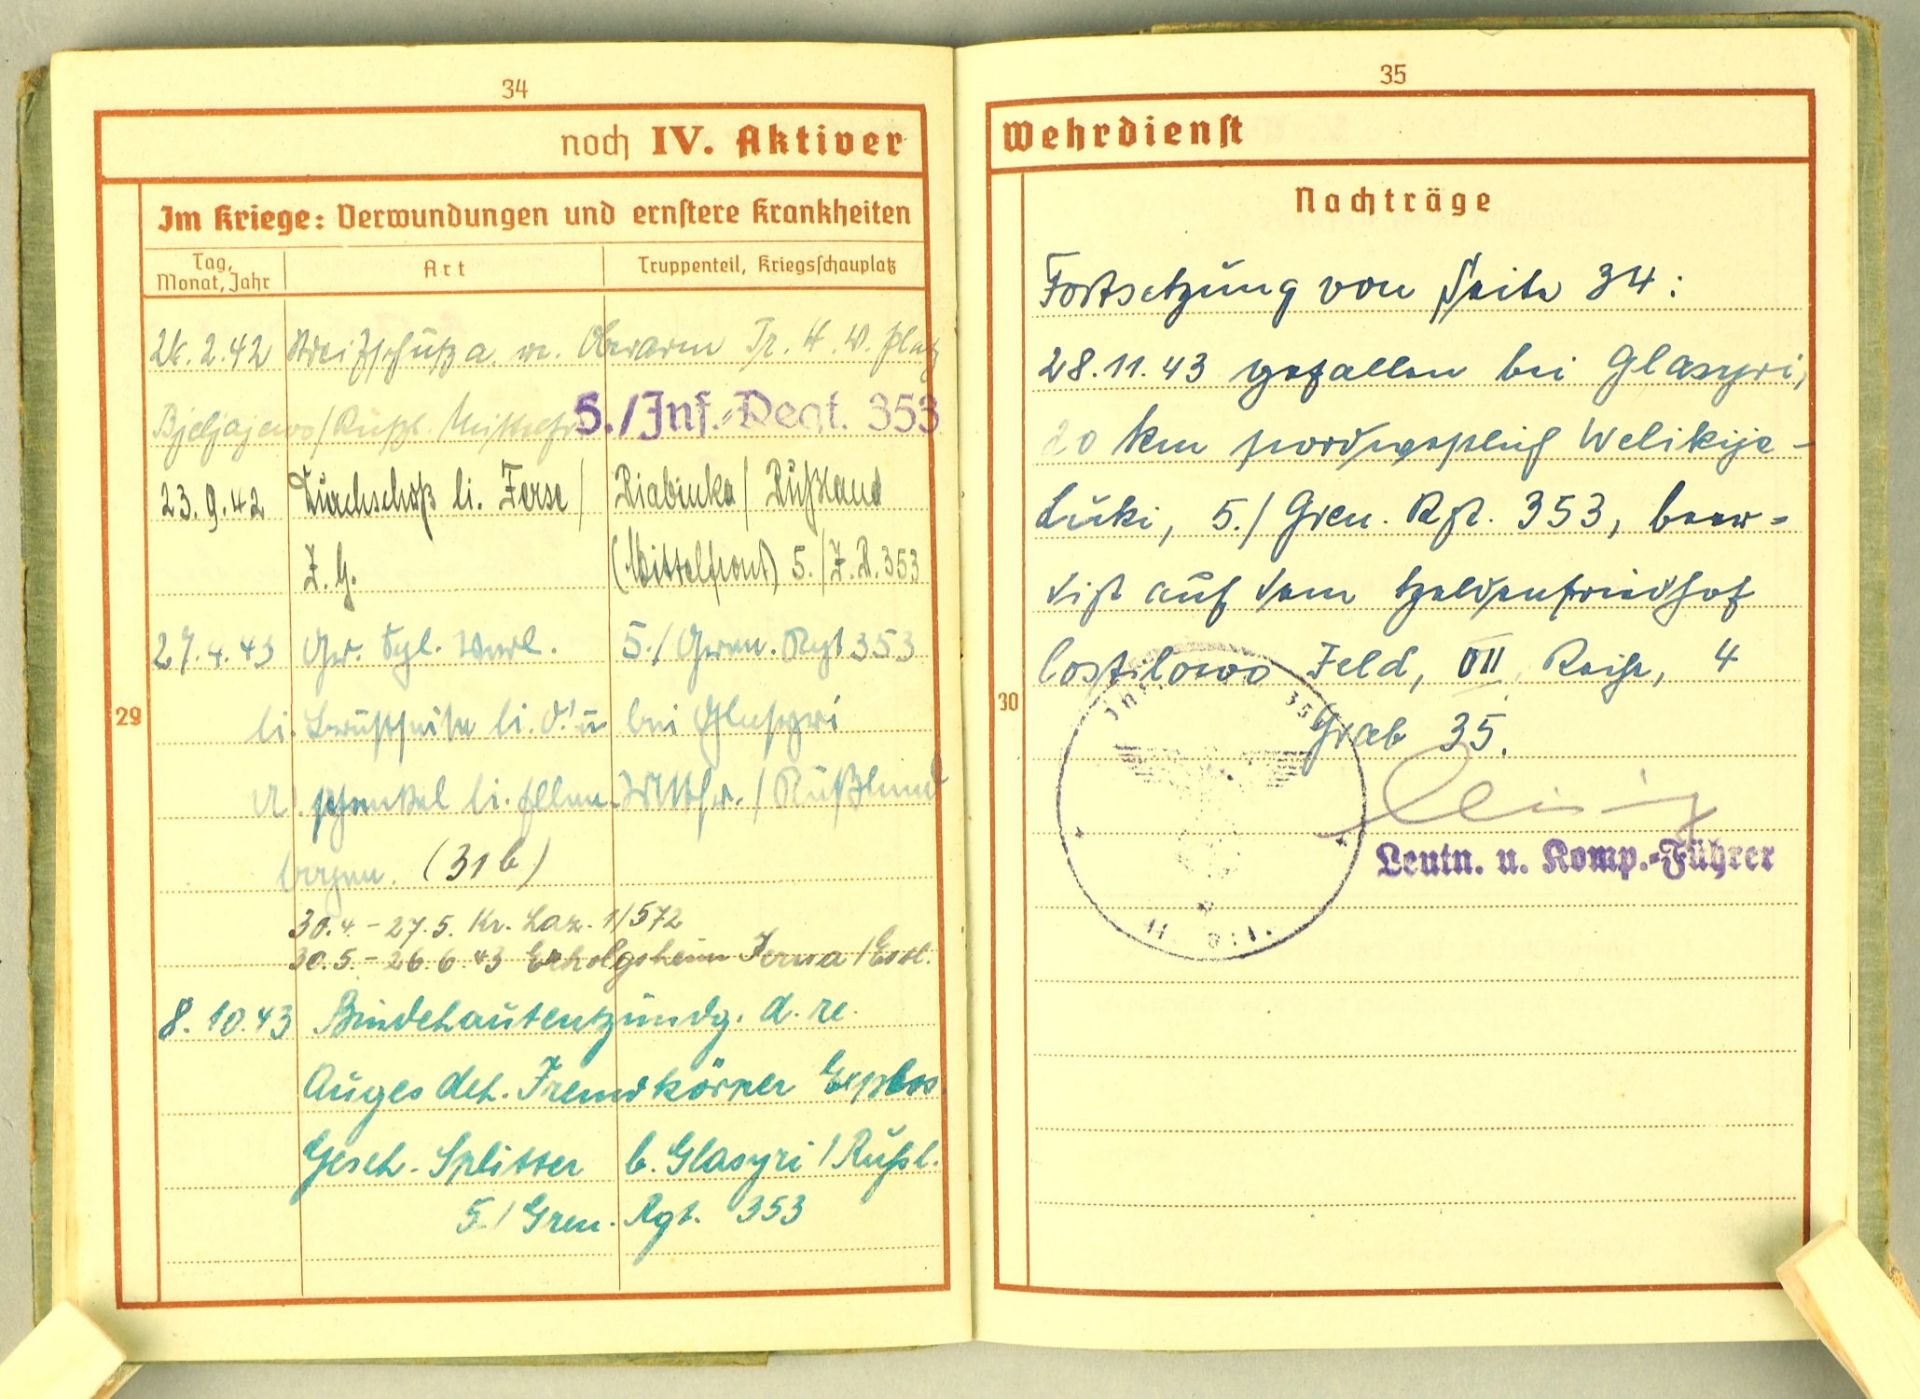 34
noch IV. Aktiver
Im Kriege: Verwundungen und ernstere Krankheiten
Tag, Monat, Jahr
Art
Truppenteil, Kriegsschauplatz
2.42 Streifschuß a. re. Oberarm Tr. H. V. Platz
5./Inf.-Regt. 353
23.9.42 Durchschuß li. Ferse / Riabinka / Rußland
I. G. (Mittelfront) 5./I.R. 353
27.4.43 Gr. Spl. Verl. 5./Gren. Rgt 353
li. Brustseite li. O. u bei Glasyri
U. schenkel li. Ellen- / Rußland
bogen. (31 b)
30.4. - 27.5. Kr. Laz. 1/572
30.5. - 26.6.43 Erholgsheim Jerwa / Estl.
8.10.43 Bindehautentzündg. d. re.
Auges deh. Fremdkörper Explos.
Gesch. Splitter b. Glasyri / Rußl.
5./Gren. Rgt. 353
29
35
Wehrdienst
Nachträge
Fortsetzung von Seite 34:
28.11.43 gefallen bei Glasyri,
20 km nordwestlich Welikije-
Luki, 5./Gren. Rgt. 353, beer-
digt auf dem Heldenfriedhof
Costilowo Feld, VII, Reihe, 4
Grab 35.
30
Leutn. u. Komp.-Führer